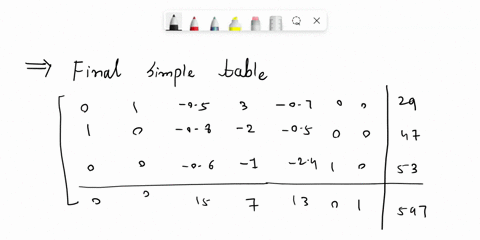 ⇒ Final simple table
0 1 -0.5 3 -0.7 0 0 29
1 0 -0.8 -2 -0.5 0 0 47
0 0 -0.6 -1 -2.4 1 0 53
0 0 15 7 13 0 1 597